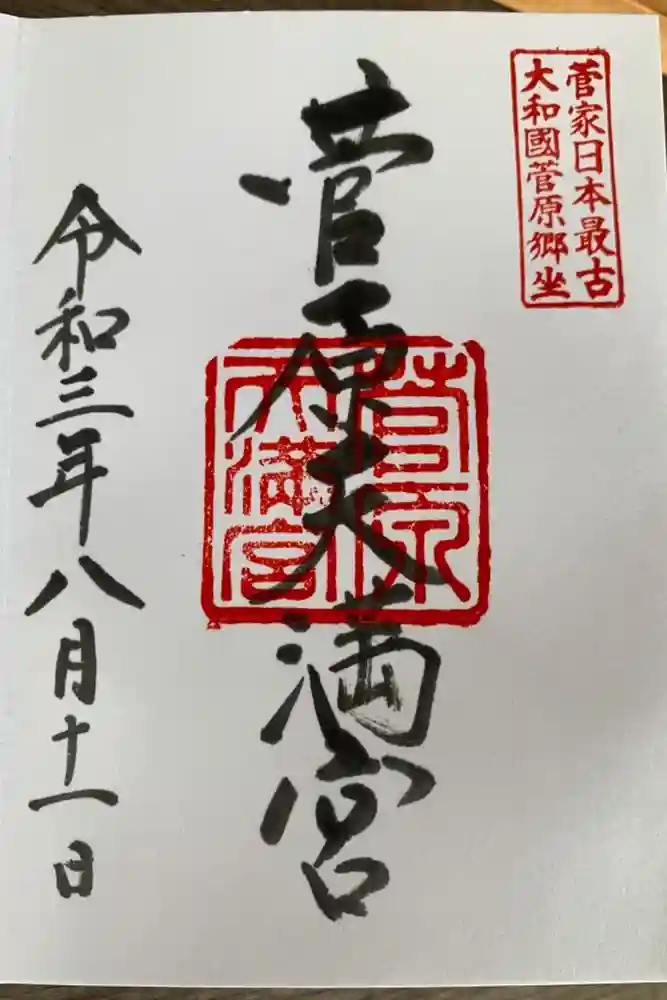 菅家日本最古
大和國菅原郷坐
菅原天満宮
菅原
天満宮
令和三年八月十一日